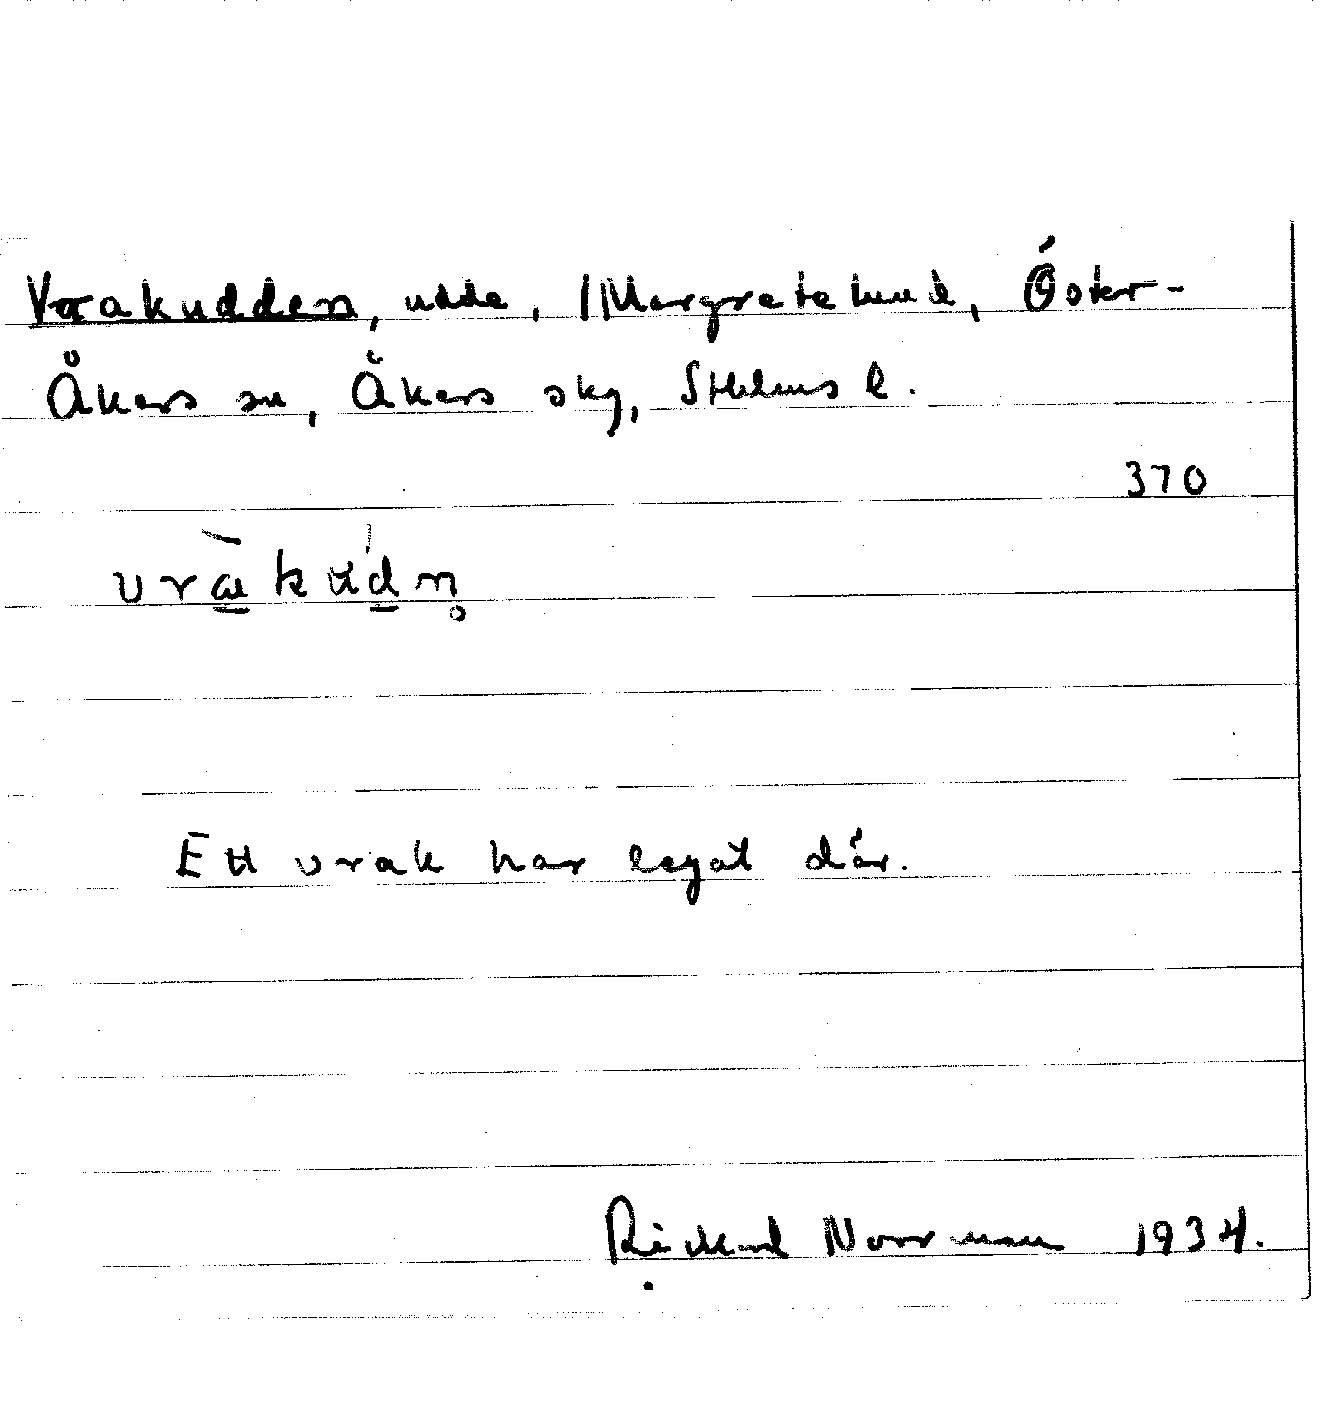 Vrakudden, udde, Margretelund, Öster-
Åkers sn, Åkers skg, Sthlms l.
370
vrɑ̀kúdn̥
Ett vrak har legat där.
Rickard Norrman 1934.